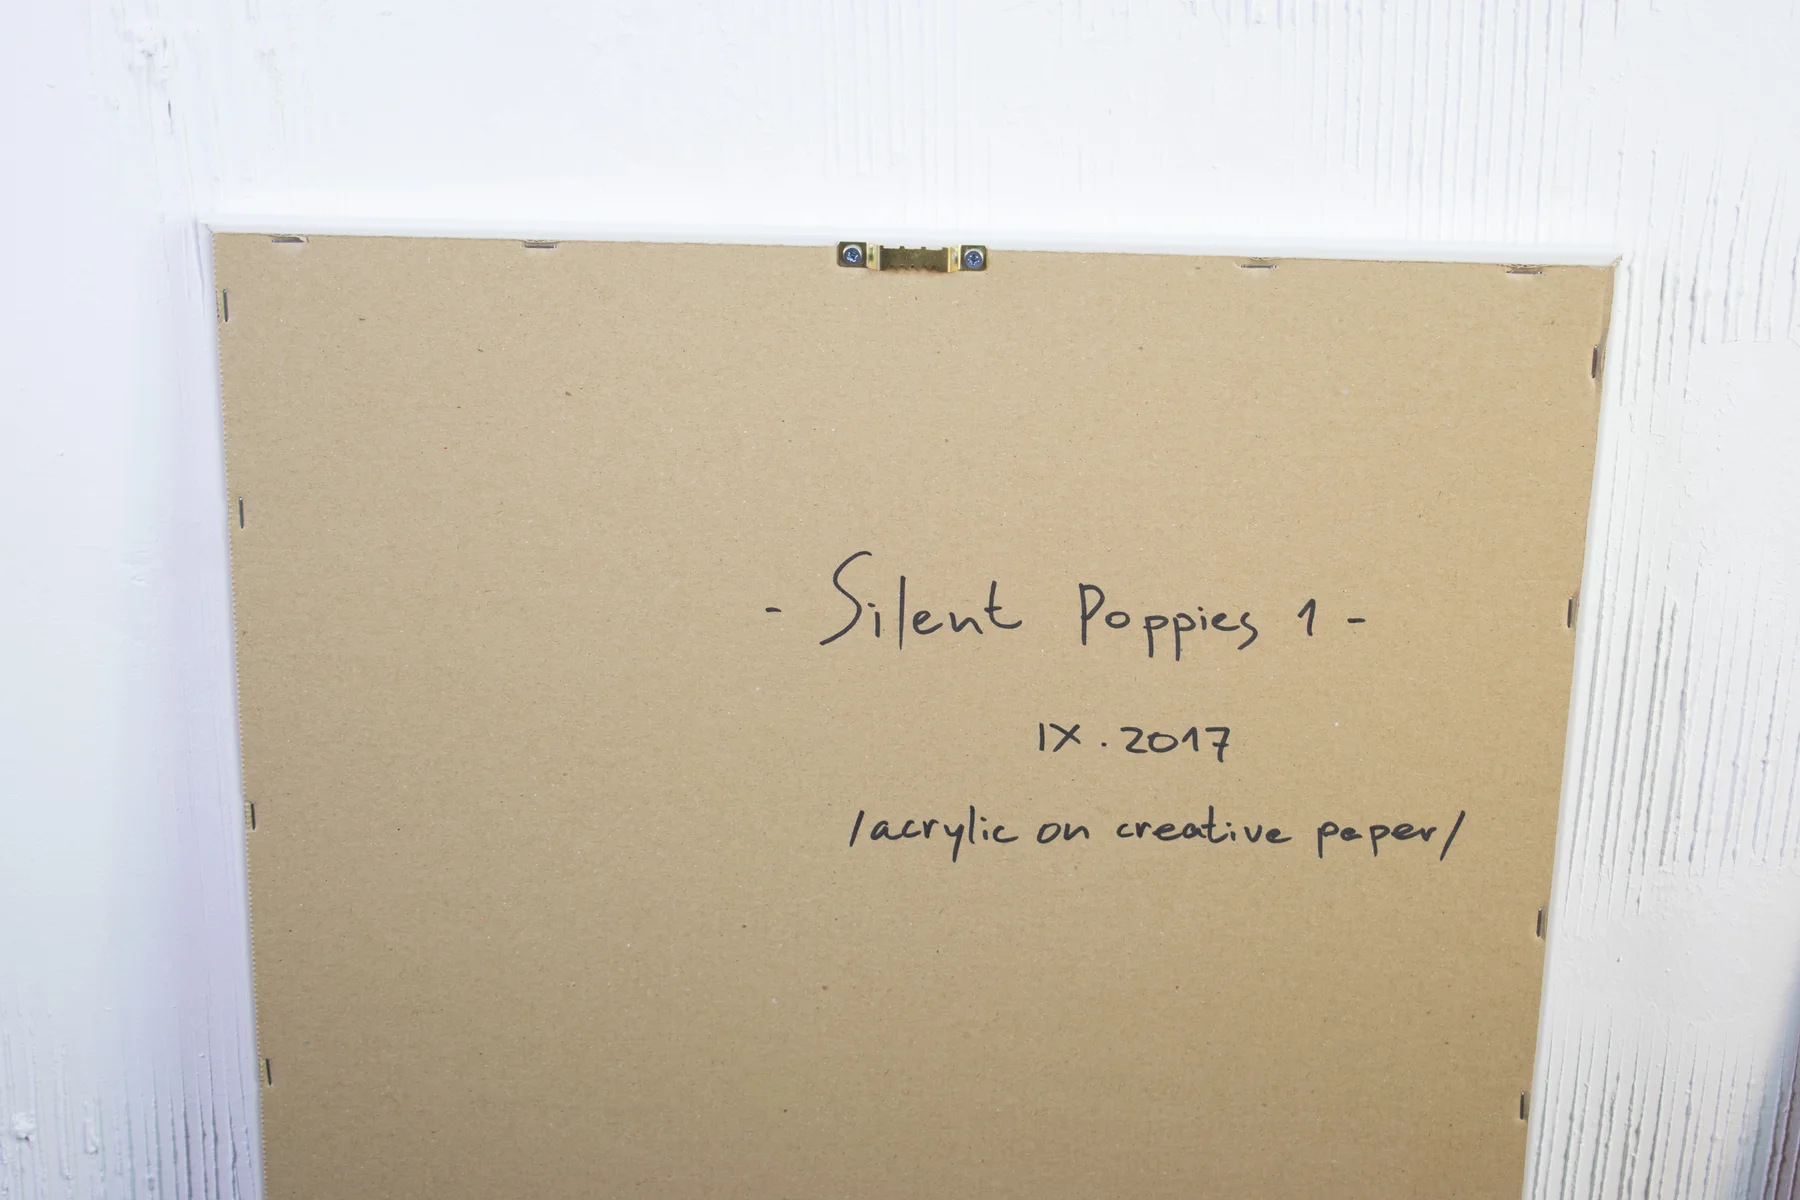 - Silent Poppies 1 -
IX. 2017
/acrylic on creative paper/